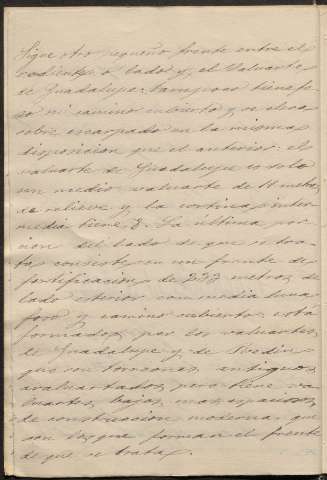 Sigue otro pequeño frente entre el
rediente, o lado y el Valuarte
de Guadalupe: tampoco tiene fo-
so ni camino cubierto y se eleva
sobre escarpado en la misma
disposicion que el anterior: el
valuarte de Guadalupe es solo
un medio valuarte de 11 metros
de relieve y la cortina inter-
media tiene 8. La última por-
cion del lado de que se tra-
ta consiste en un frente de
fortificacion de 222 metros de
lado exterior con media luna
foso y camino cubierto: está
formado por los valuartes
de Guadalupe y de
que son torreones antiguos
avaluartados, pero tiene va-
luartes bajos mas espaciosos
de construccion moderna que
son los que forman el frente
de que se trata.